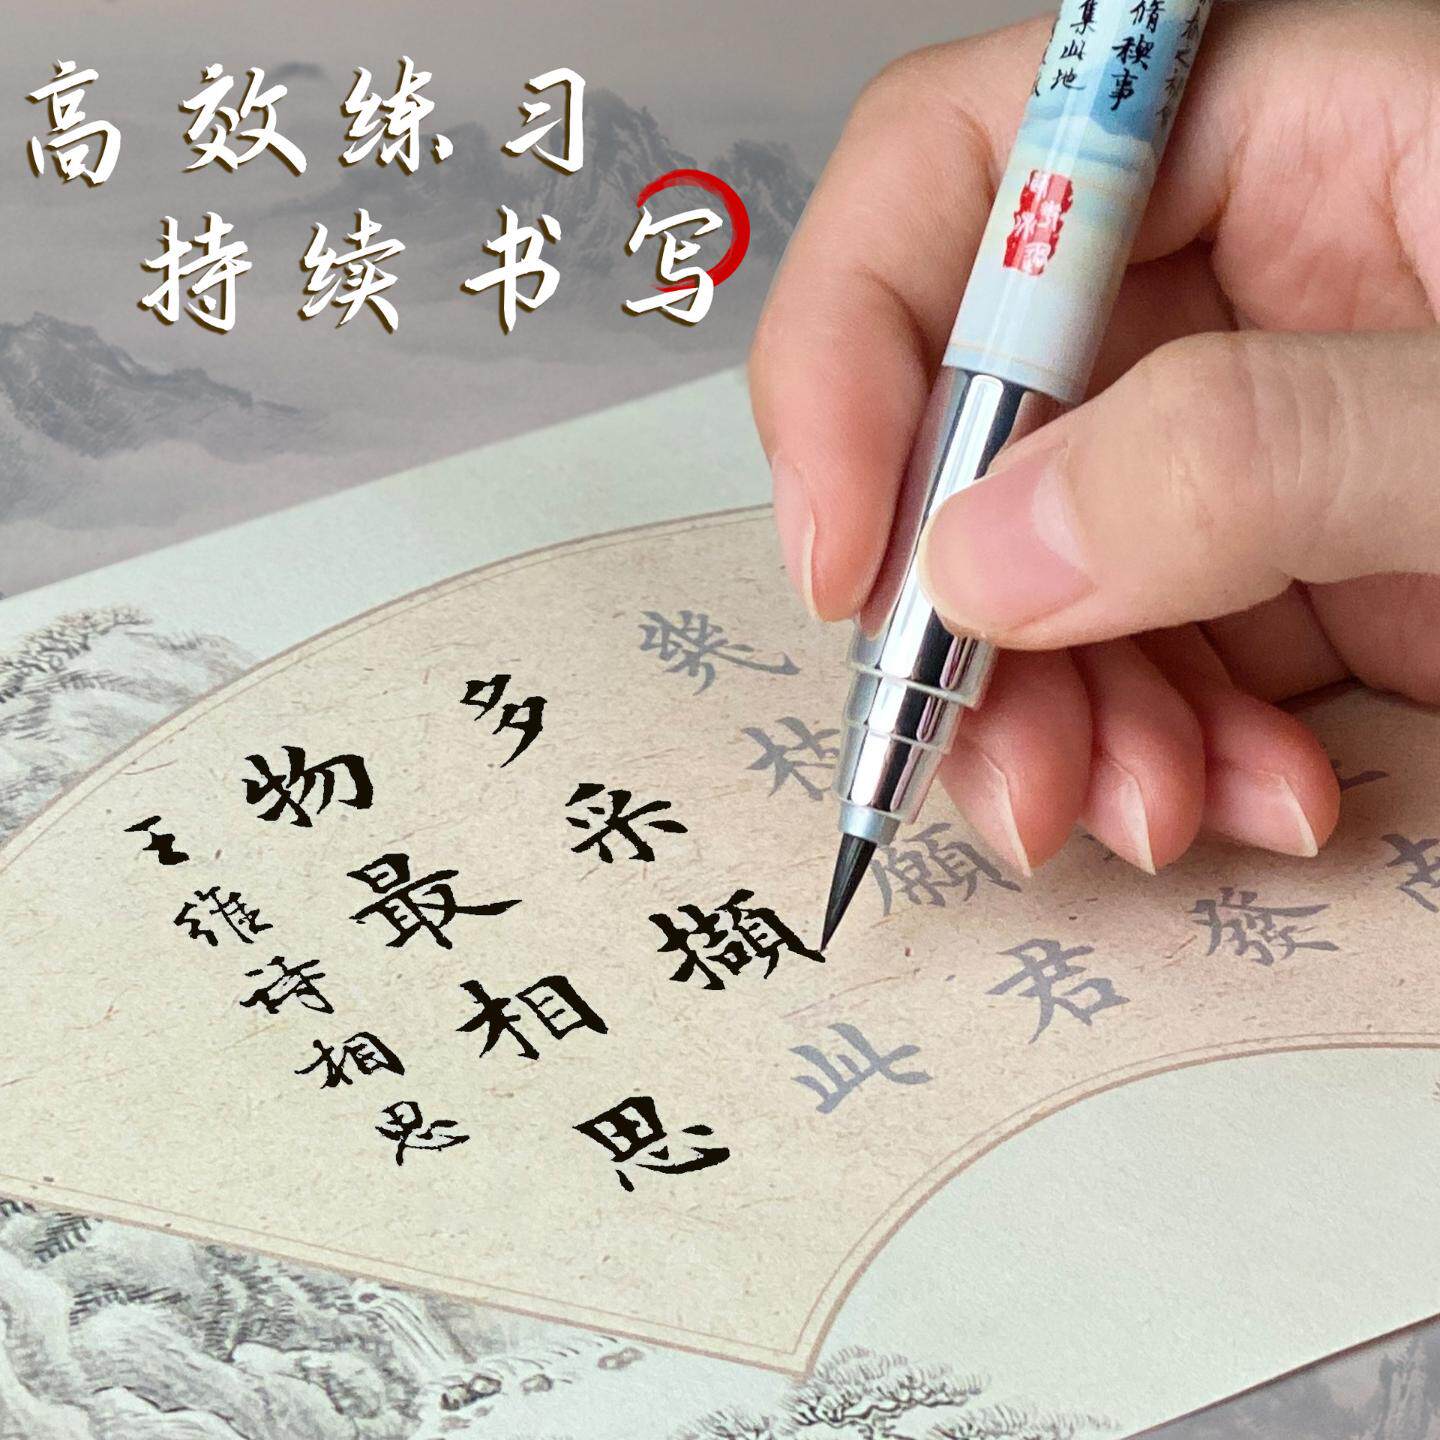 高效练习
持续书写
脩稧事
集此地
發
幾枝願君
多采擷此
物最相思
王维诗相思